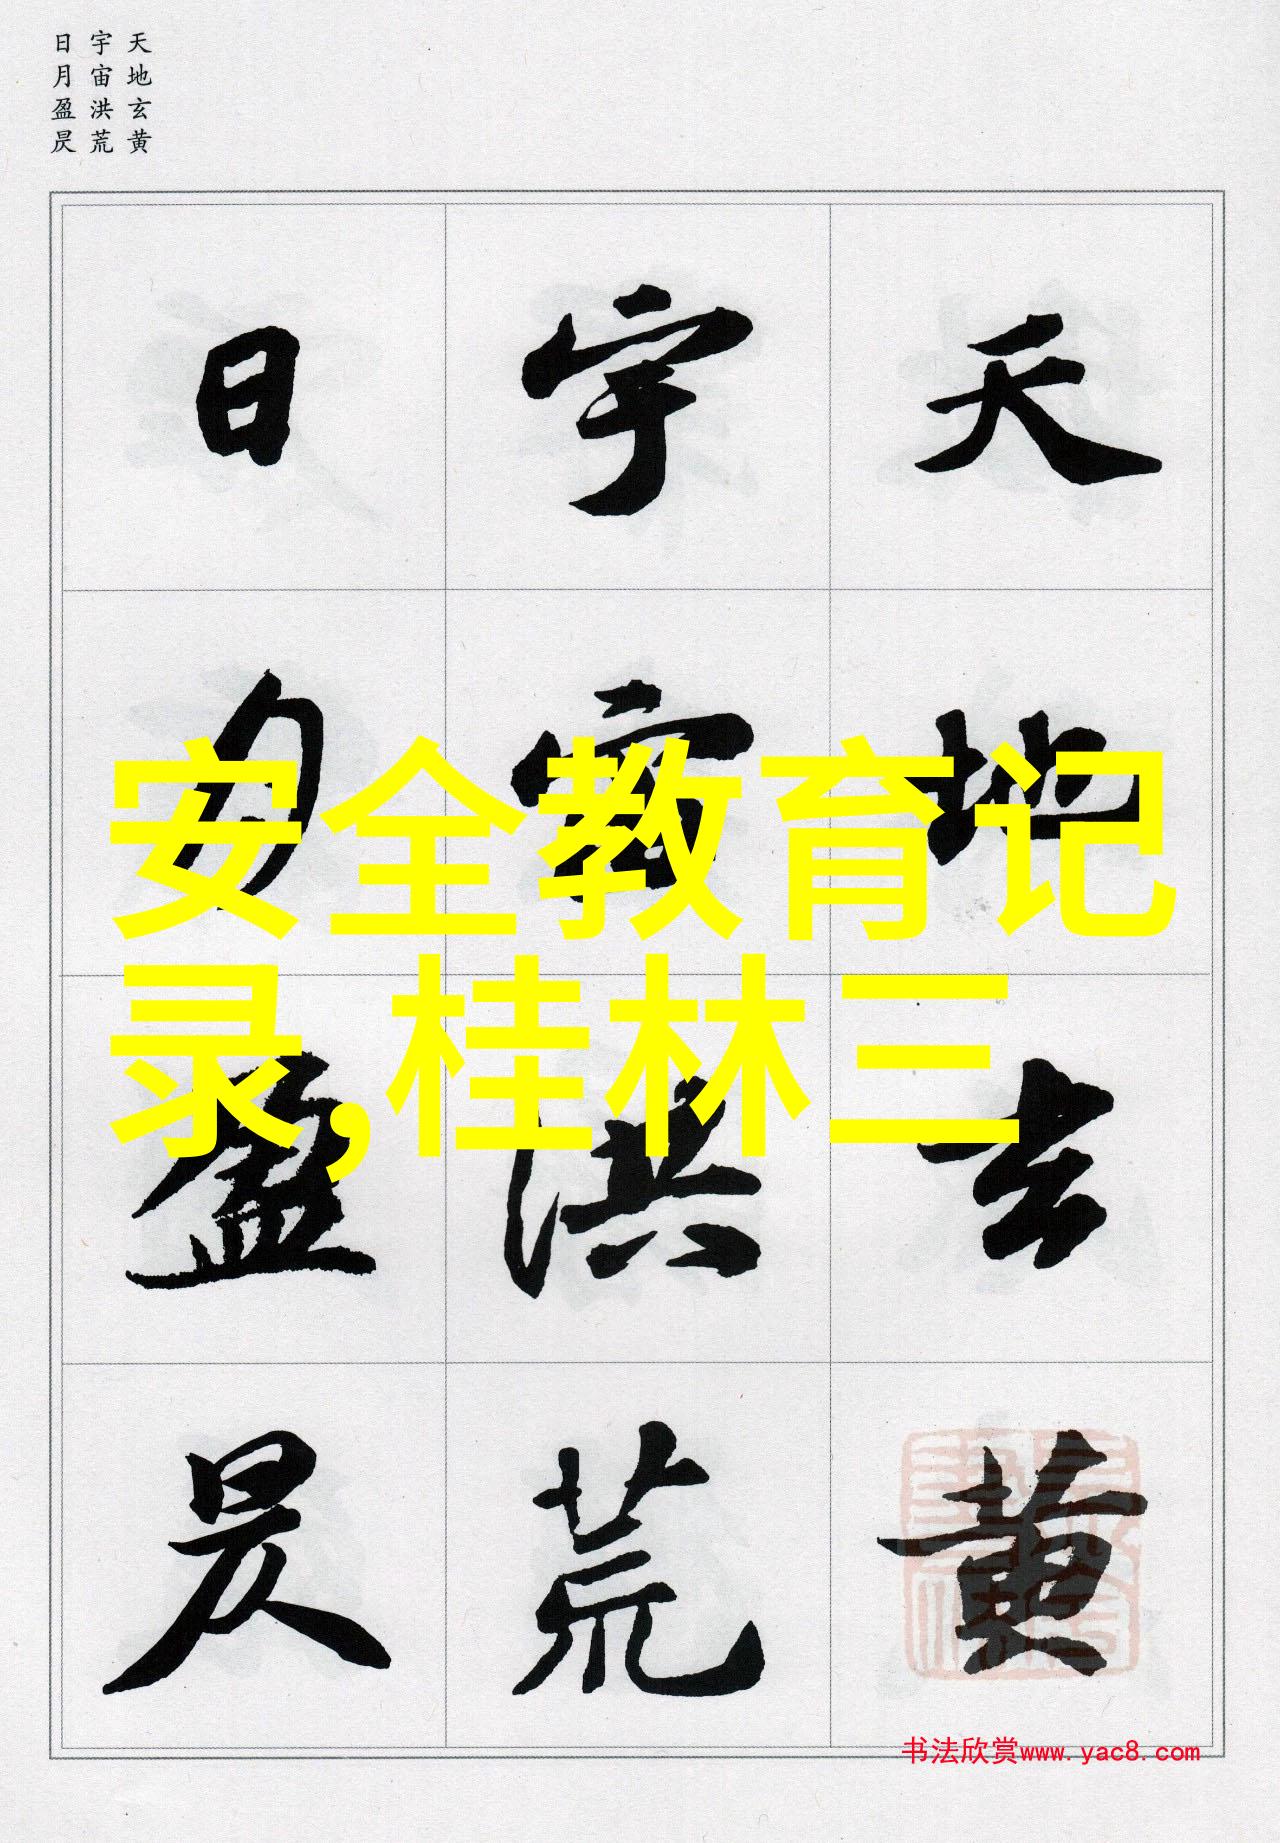 天地玄黄
宇宙洪荒
日月盈昃
天地玄黄
宇宙洪荒
日月盈昃
安全教育记
录,桂林三
书法欣赏www.yac8.com